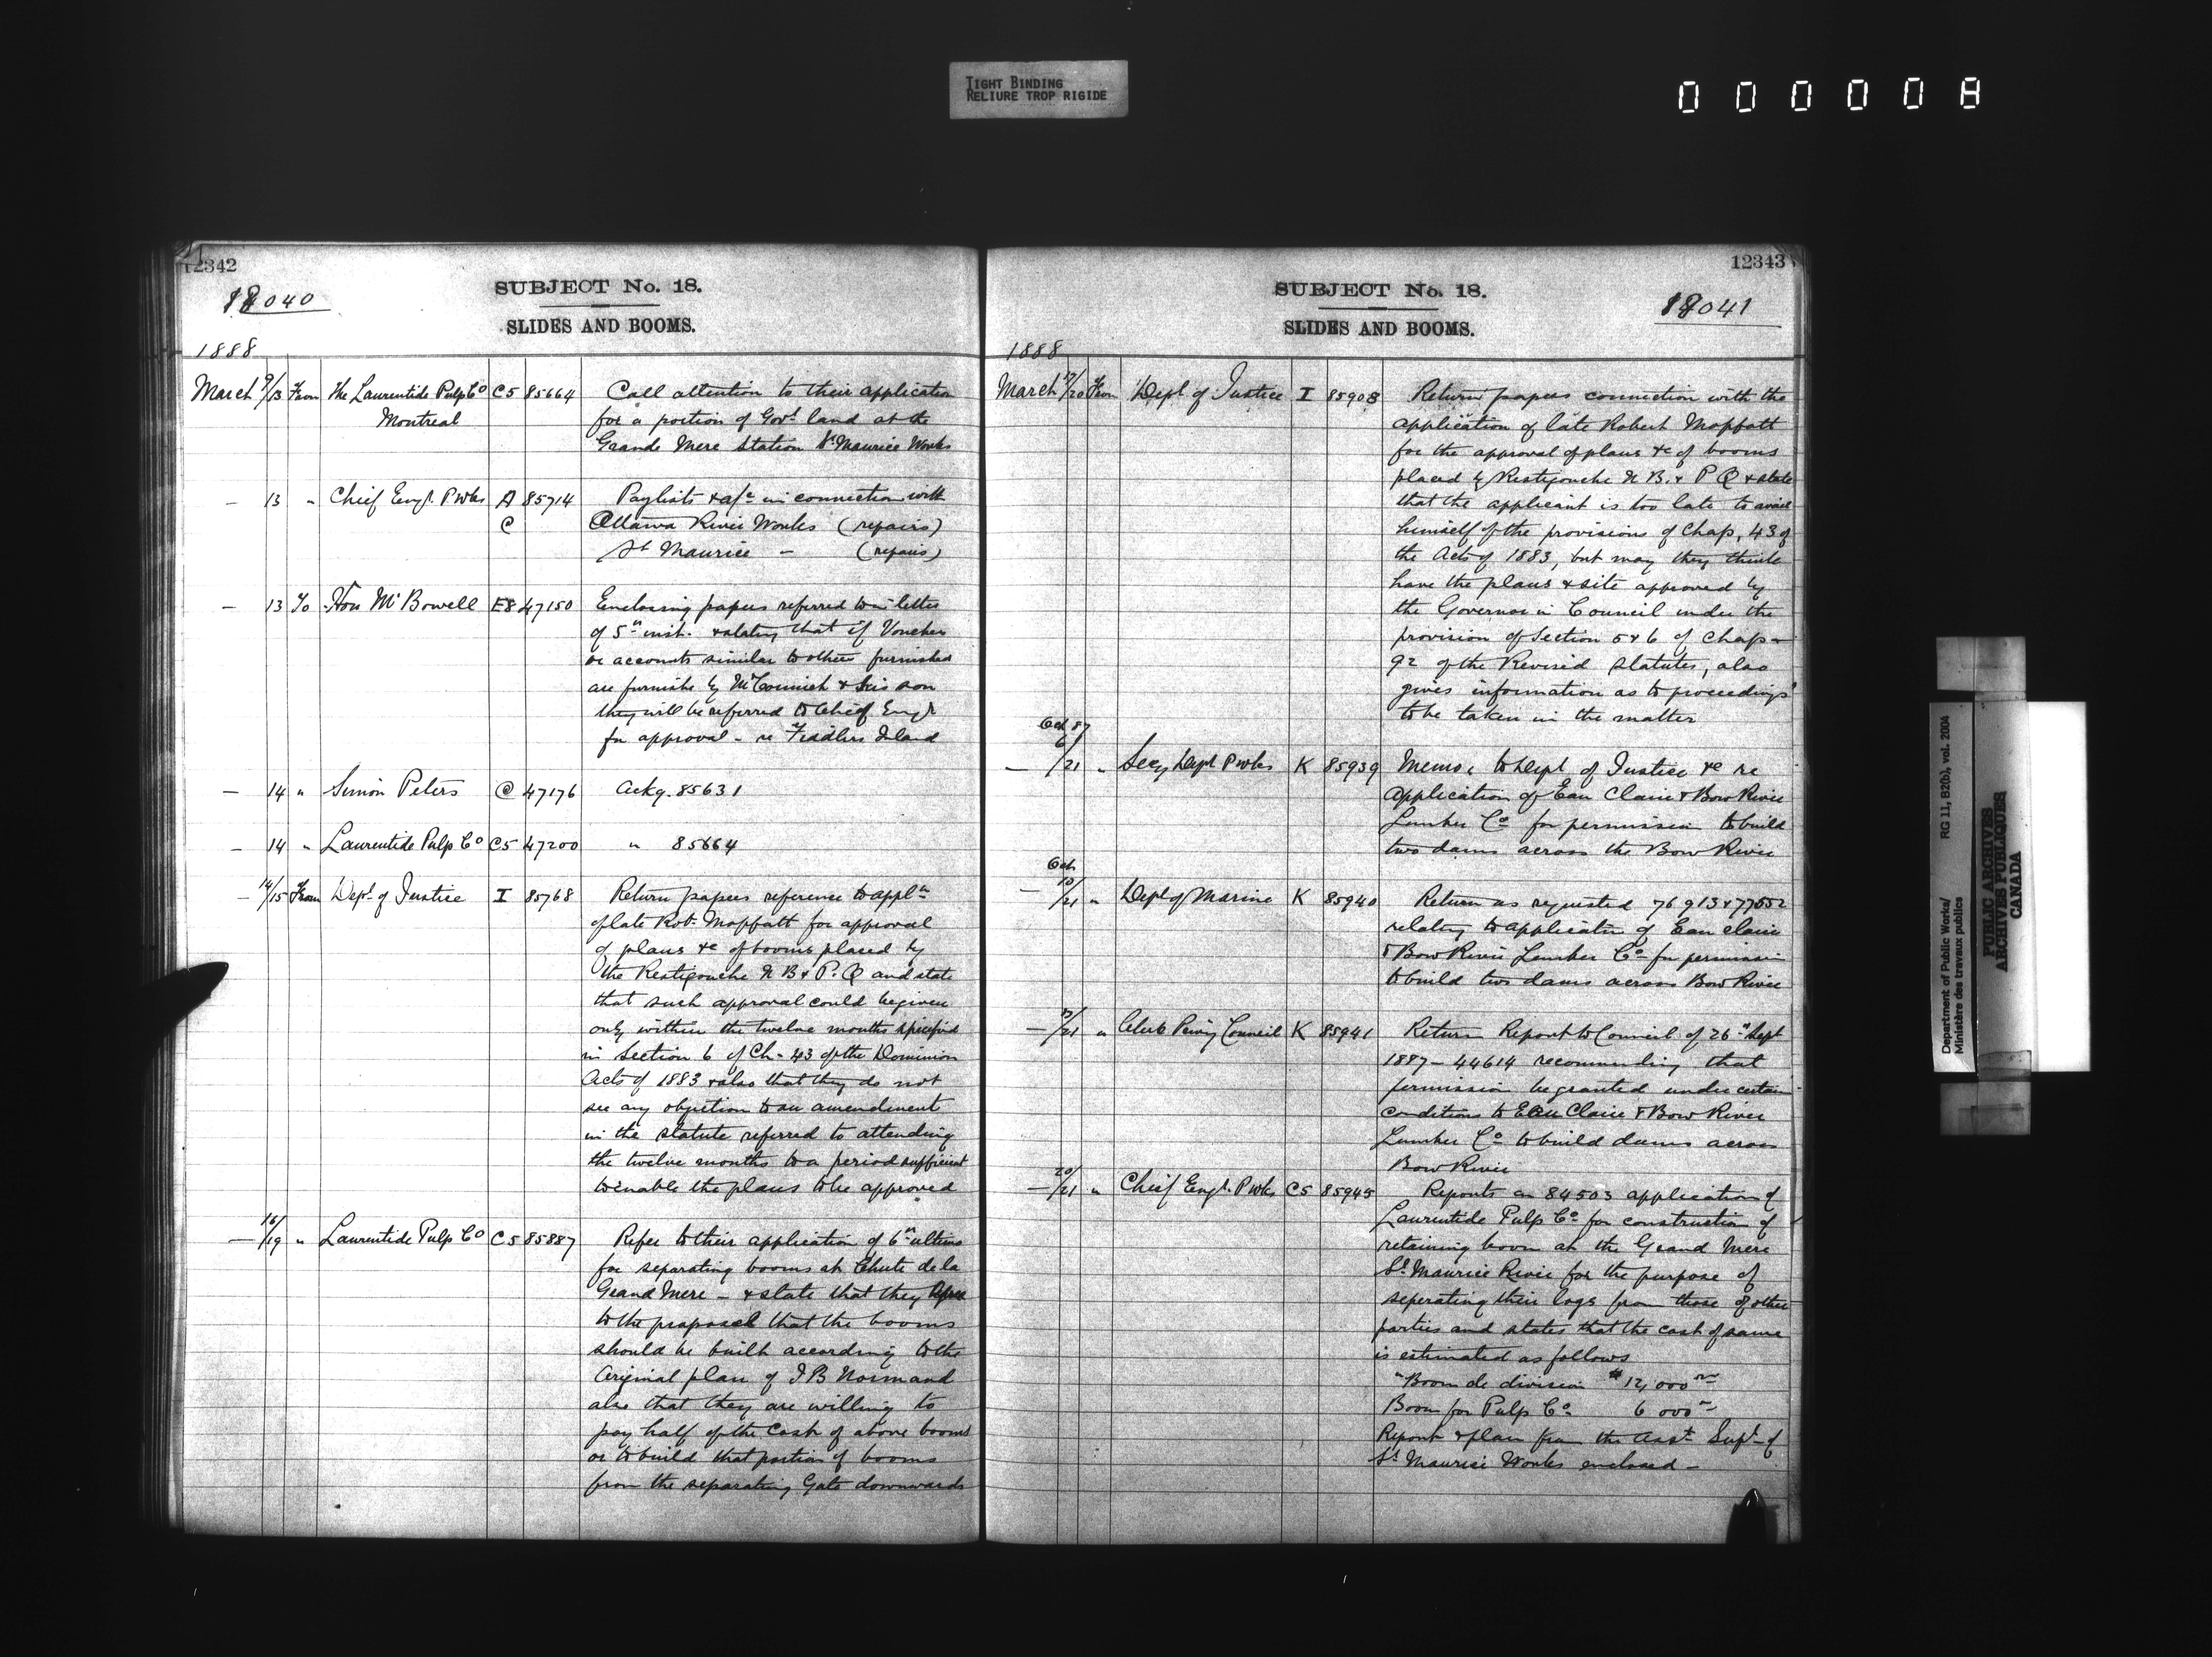 TIGHT BINDING
RELIURE TROP RIGIDE
000008
12342
18040
SUBJECT No. 18.
SLIDES AND BOOMS.
1888
March 9/13 From The Laurentide Pulp Co C5 85664 Call attention to their application
Montreal for a portion of Govt land at the
Grande Mere Station St Maurice Works
— 13 " Chief Engr. P Wks A 85714 Paylists & a/c in connection with
C Ottawa River Works (repairs)
St Maurice — (repairs)
— 13 To Hon Mr Bowell E8 47150 Enclosing papers referred to in letter
of 5th inst. & stating that if Voucher
or accounts similar to others furnished
are furnishe by McCormick & his son
they will be referred to Chief Engr
for approval - re Fiddlers Island
— 14 " Simon Peters C 47176 Ackg. 85631
— 14 " Laurentide Pulp Co C5 47200 " 85664
— 14/15 From Dept. of Justice I 85768 Return papers reference to appln
of late Robt. Moffatt for approval
of plans &c of booms placed by
the Restigouche N B & P. Q and state
that such approval could be given
only within the twelve months specified
in Section 6 of Ch. 43 of the Dominion
Acts of 1883 & also that they do not
see any objection to an amendment
in the statute referred to attending
the twelve months to a period sufficient
to enable the plans to be approved
— 16/19 " Laurentide Pulp Co C5 85887 Refer to their application of 6th ultimo
for separating booms at Chute de la
Grand Mere - & state that they agree
to the proposal that the booms
should be built according to the
Original plan of J B Normand
also that they are willing to
pay half of the Cost of above booms
or to build that portion of booms
from the separating Gate downwards
12343
18041
SUBJECT No. 18.
SLIDES AND BOOMS.
1888
March 17/20 From Dept. of Justice I 85908 Return papers connection with the
application of late Robert Moffatt
for the approval of plans &c of booms
placed by Restigouche N B. & P Q & state
that the applicant is too late to avail
himself of the provisions of Chap, 43 of
the Acts of 1883, but may they think
have the plans & site approved by
the Governor in Council under the
provision of Section 5 & 6 of Chap-
92 of the Revised Statutes, also
gives information as to proceedings
to be taken in the matter
Oct 87
— 6/21 " Secy Dept P Wks K 85939 Memo, to Dept of Justice &c re
application of Eau Claire & Bow River
Lumber Co for permission to build
two dams across the Bow River
Oct
— 10/21 " Dept of Marine K 85940 Return as requested 76913 & 77552
relating to application of Eau claire
& Bow River Lumber Co for permission
to build two dams across Bow River
— /21 " Clerk Privy Council K 85941 Return Report to Council of 26th Sept
1887 - 44614 recommending that
permission be granted under certain
conditions to Eau Claire & Bow River
Lumber Co to build dams across
Bow River
— 20/21 " Chief Engr. P Wks C5 85945 Reports on 84503 application of
Laurentide Pulp Co for construction of
retaining boom at the Grand Mere
St Maurice River for the purpose of
seperating their logs from those of other
parties and states that the cost of same
is estimated as follows
"Boom de division $12,000
Boom for Pulp Co 6 000
Report & plan from the Asst. Supt. of
St Maurice Works enclosed -
Department of Public Works/ RG 11, B2(b), vol. 2004
Ministère des travaux publics
PUBLIC ARCHIVES
ARCHIVES PUBLIQUES
CANADA